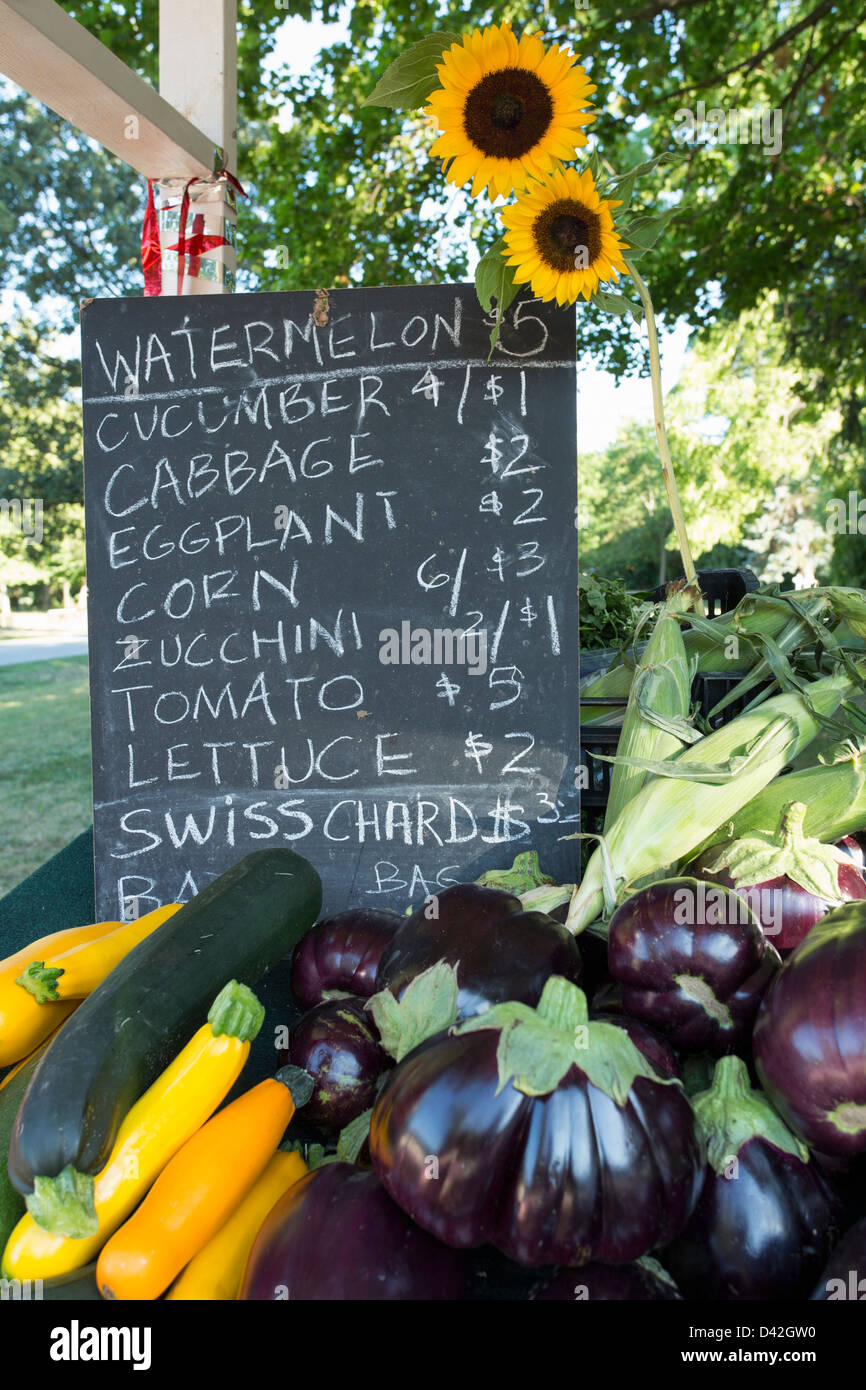 WATERMELON $5
CUCUMBER 4/$1
CABBAGE $2
EGGPLANT $2
CORN 6/$3
ZUCCHINI 2/$1
TOMATO $5
LETTUCE $2
SWISS CHARD $3
BAG
alamy
Image ID: D42GW0
www.alamy.com